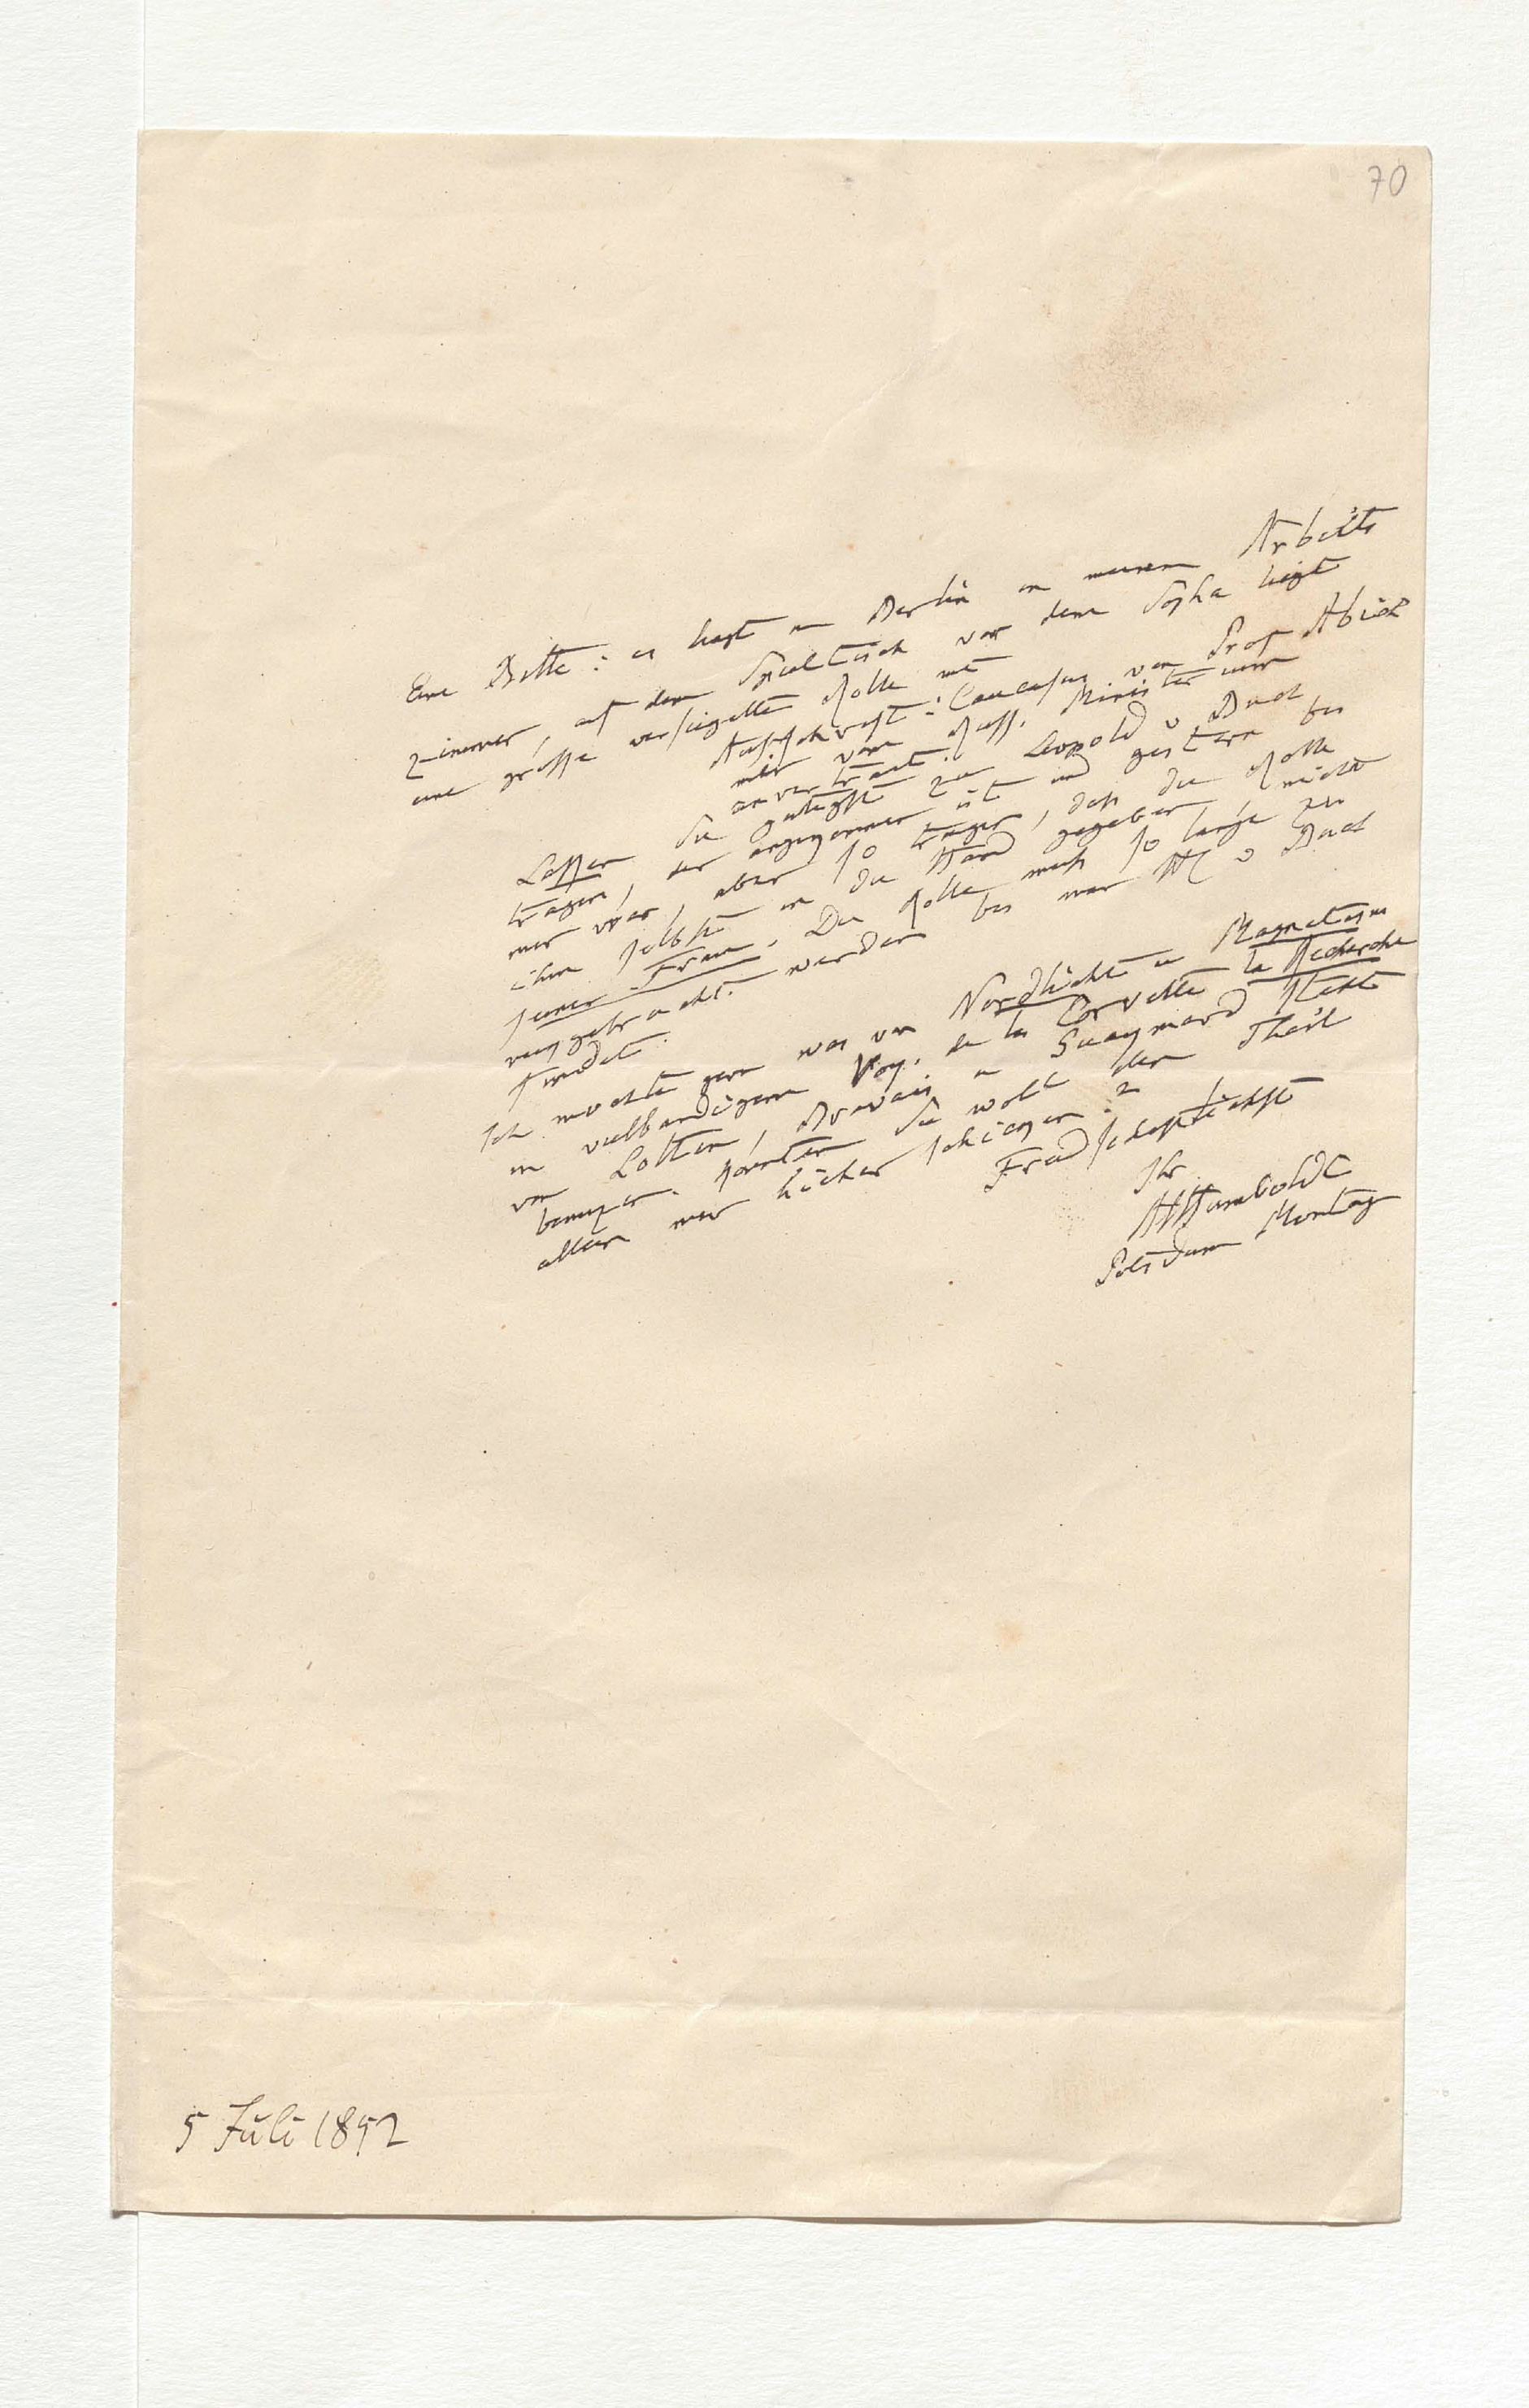 70
Eine Bitte: es liegt in Berlin in meinem Arbeits
zimmer, auf dem Spieltisch vor dem Sopha liegt
eine grosse versiegelte Rolle mit
Aufschrift: Caucasus von Prof Abich
mir vom Russ. Minister nur
anvertraut.
Lassen Sie gütigst zu Leopold v Buch
tragen, der angekommen ist und gestern bei
mir war, aber so tragen, dass die Rolle
ihm selbst in die Hand gegeben nicht
seiner Frau. Die Rolle muss so lange zu
rückgebracht werden bis man H v Buch
findet.
Ich mochte gern was von Nordlicht u Magnetism
in vielbandigem Voy. de la Corvette la Recherche
von Lottin, Bravais u Gueymard steht
benuzen. Könnten Sie wohl den Theil
allein mir hieher schicken?
Freundschaftlichst
Ihr
AHumboldt
Potsdam Montag
5 Juli 1852